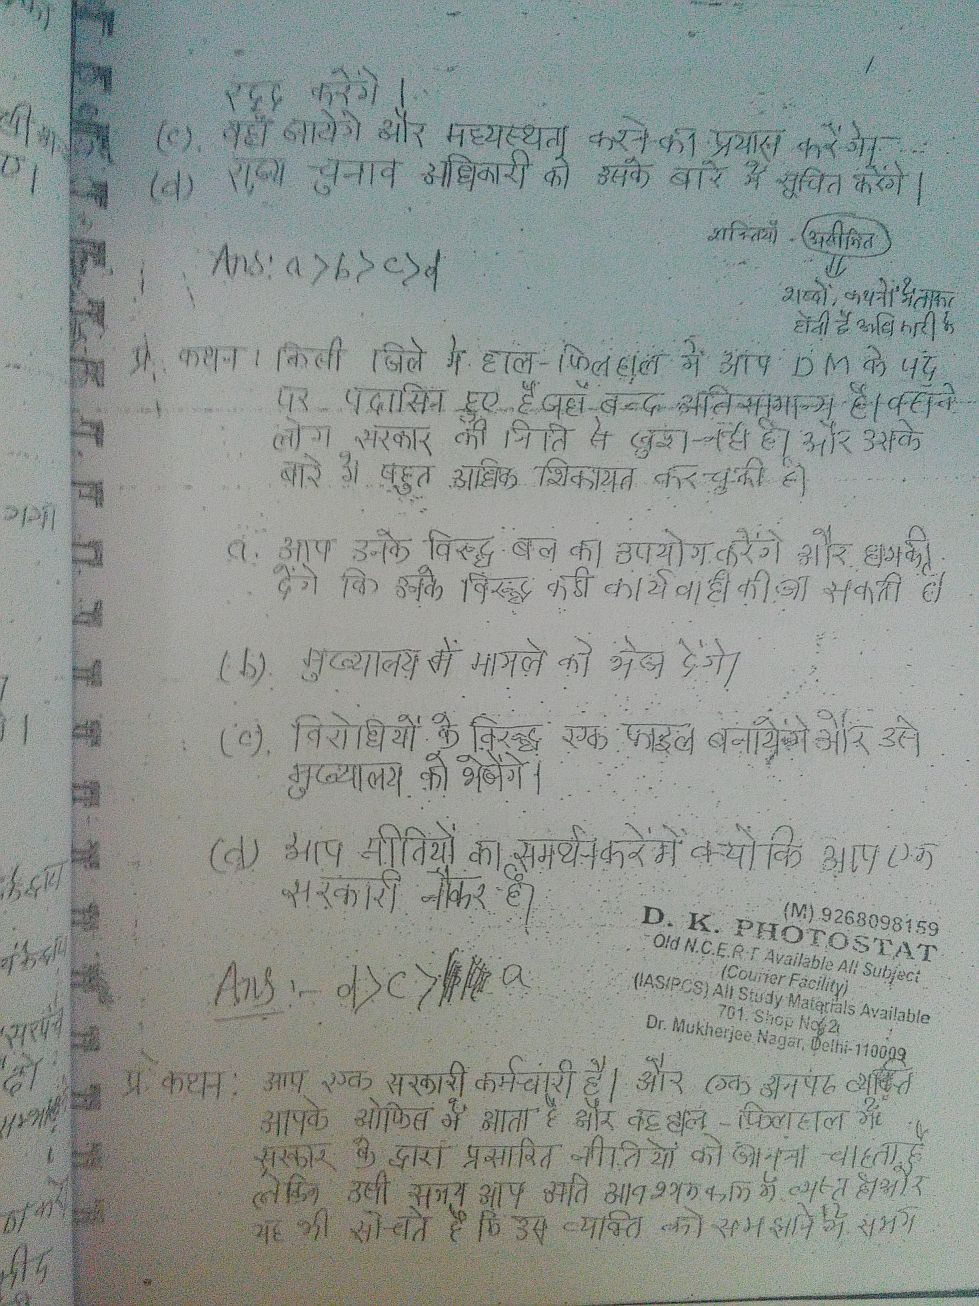 रद्द करेंगे।
(c). वहाँ जायेंगे और मध्यस्थता करने का प्रयास करेंगे।
(d) राज्य चुनाव अधिकारी को उसके बारे में सूचित करेंगे।
शक्तियाँ - असीमित
Ans: a > b > c > d
शब्दों, कथनों में ताकत
होती है अधिकारी के
प्र. कथन। किसी जिले में हाल-फिलहाल में आप DM के पद
पर पदासिन हुए हैं जहाँ बन्द अति सामान्य है। वहाँ के
लोग सरकार की निति से खुश नहीं हैं। और उसके
बारे में बहुत अधिक शिकायत कर चुकी है।
a. आप उनके विरुद्ध बल का उपयोग करेंगे और धमकी
देंगे कि उनके विरुद्ध कडी कार्यवाही की जा सकती है।
(b). मुख्यालय में मामले को भेज देंगे।
(c). विरोधियों के विरुद्ध एक फाइल बनायेंगे और उसे
मुख्यालय को भेजेंगे।
(d) आप नीतियों का समर्थन करेंगें क्योंकि आप एक
सरकारी नौकर हैं।
(M) 9268098159
D. K. PHOTOSTAT
Old N.C.E.R.T Available All Subject
(Courier Facility)
(IAS/PCS) All Study Materials Available
701, Shop No.
Dr. Mukherjee Nagar, Delhi-110009
Ans :- d > c > a
प्र. कथन: आप एक सरकारी कर्मचारी हैं। और एक अनपढ व्यक्ति
आपके ओफिस में आता है और वह हाल-फिलहाल में
सरकार के द्वारा प्रसारित नीतियों को जानना चाहता है
लेकिन उसी समय आप अति आवश्यक काम में व्यस्त है। और
यह भी सोचते हैं कि उस व्यक्ति को समझाने में समग